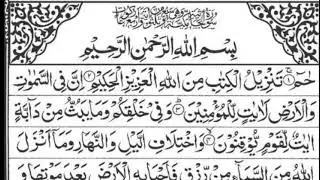 بِسْمِ اللهِ الرَّحْمٰنِ الرَّحِيْمِ
حٰمٓ ۚ تَنْزِيْلُ الْكِتٰبِ مِنَ اللهِ الْعَزِيْزِ الْحَكِيْمِ ۝ اِنَّ فِى السَّمٰوٰتِ
وَالْاَرْضِ لَاٰيٰتٍ لِّلْمُؤْمِنِيْنَ ۝ وَفِىْ خَلْقِكُمْ وَمَا يَبُثُّ مِنْ دَآبَّةٍ
اٰيٰتٌ لِّقَوْمٍ يُّوْقِنُوْنَ ۝ وَاخْتِلَافِ الَّيْلِ وَالنَّهَارِ وَمَآ اَنْزَلَ
اللهُ مِنَ السَّمَآءِ مِنْ رِّزْقٍ فَاَحْيَا بِهِ الْاَرْضَ بَعْدَ مَوْتِهَا وَ